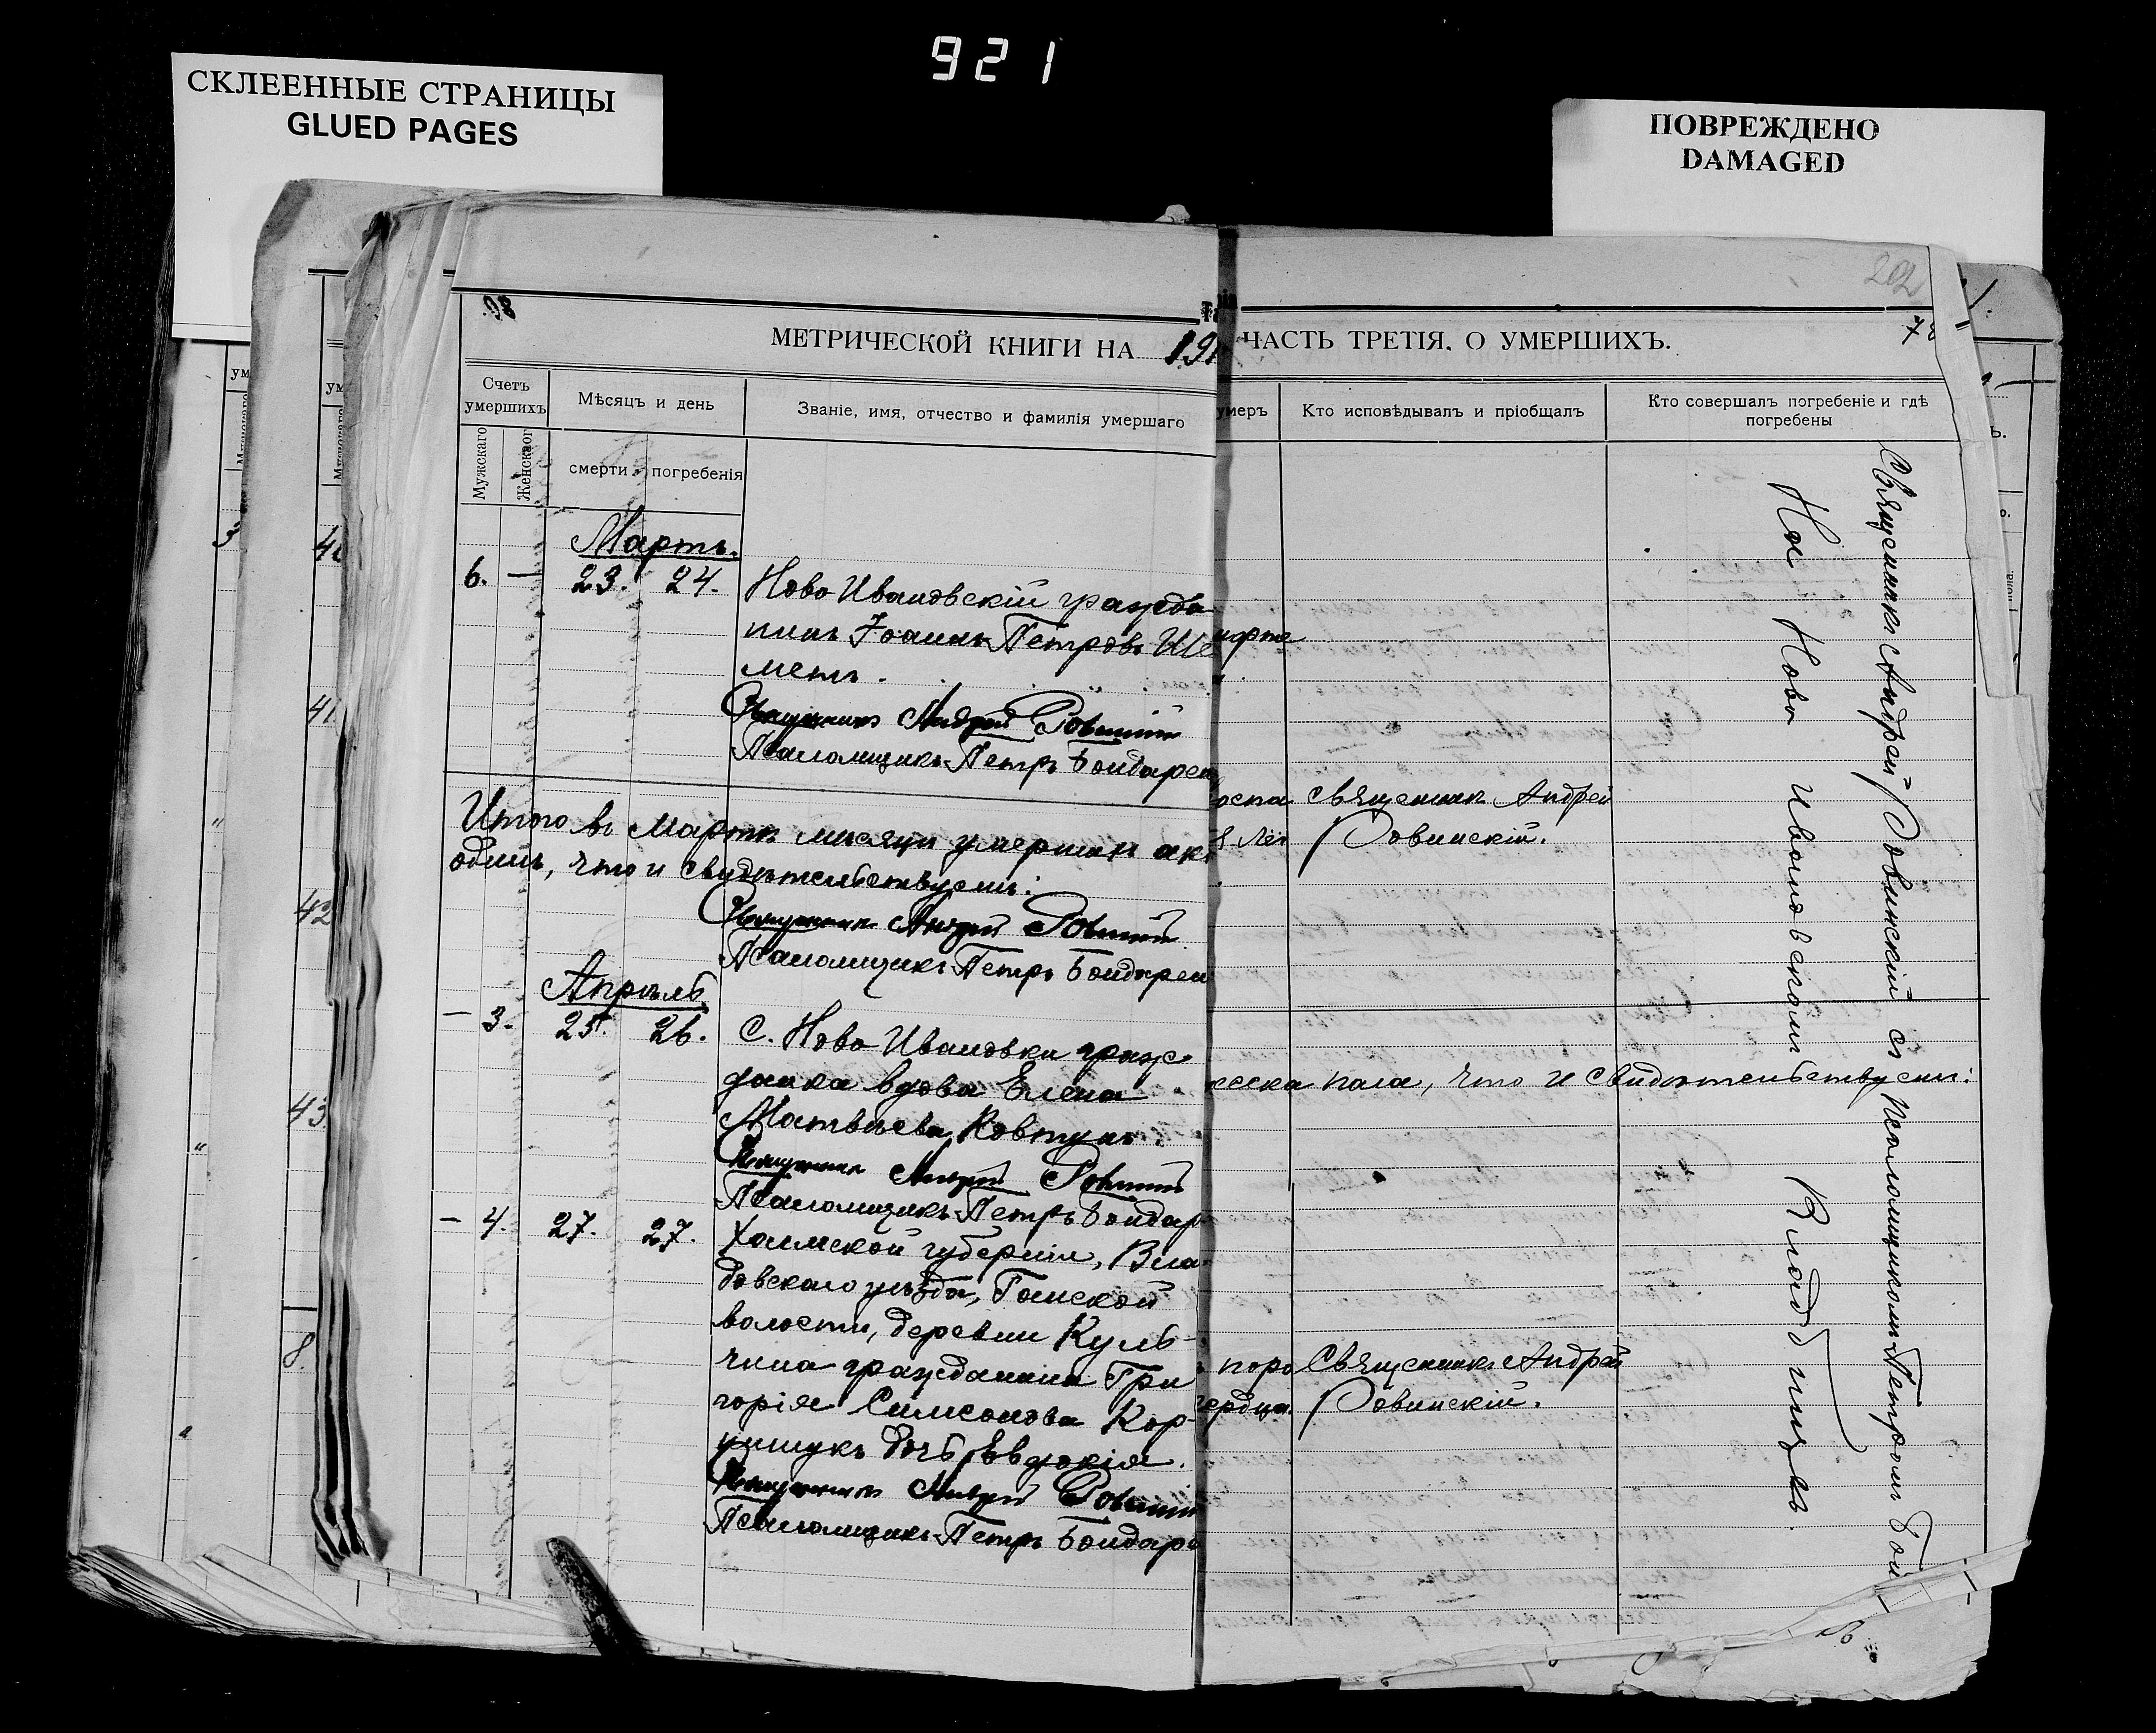 921
СКЛЕЕННЫЕ СТРАНИЦЫ
GLUED PAGES
ПОВРЕЖДЕНО
DAMAGED
98
МЕТРИЧЕСКОЙ КНИГИ НА 191
Счетъ умершихъ
Мужскаго
Женскаог
Мѣсяцъ и день
смерти
погребенія
Званіе, имя, отчество и фамилія умершаго
Мартъ.
6. — 23. 24. Ново Ивановскій гражда
нинъ Іоаннъ Петровъ Ше
метъ.
Священникъ Андрей Ровинскій
Псаломщикъ Петръ Бондарен
Итого въ Мартѣ мѣсяцѣ умершихъ
одинъ, что и свидѣтельствуемъ:
Священникъ Андрей Ровинскій
Псаломщикъ Петръ Бондарен
Апрѣль
— 3. 25. 26. С. Ново Ивановки граж
данка вдова Елена
Матвѣева Ковтунъ.
Священникъ Андрей Ровинскій
Псаломщикъ Петръ Бондар
— 4. 27. 27. Холмской губерніи, Вло
давскаго уѣзда, Ганской
волости, деревни Куль-
чина гражданина Гри
горія Симеонова Кор-
нишукъ дочь Евдокія.
Священникъ Андрей Ровинскій
Псаломщикъ Петръ Бондар
202
ЧАСТЬ ТРЕТІЯ. О УМЕРШИХЪ.
умеръ
Кто исповѣдывалъ и пріобщалъ
Кто совершалъ погребеніе и гдѣ
погребены
оспа Священникъ Андрей
Ровинскій.
пола, что и свидѣтельствуемъ:
поро Священникъ Андрей
сердца. Ровинскій.
Священникъ Андрей Ровинскій съ псаломщикомъ Петромъ Бон
На Ново Ивановскомъ Кладбищѣ.
40
41
42
43.
8.